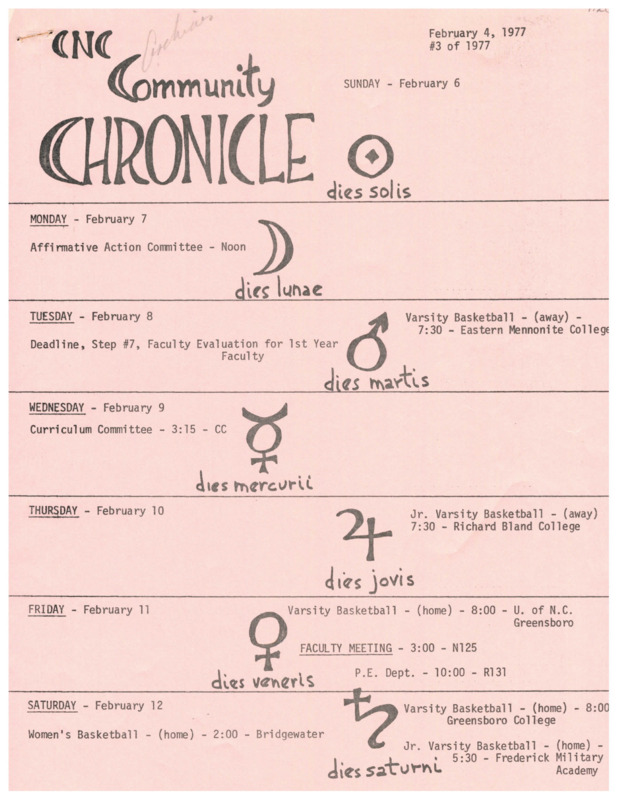 CNC
Archives
February 4, 1977
#3 of 1977
Community
SUNDAY - February 6
CHRONICLE
dies solis
MONDAY - February 7
Affirmative Action Committee - Noon
dies lunae
TUESDAY - February 8
Varsity Basketball - (away) -
7:30 - Eastern Mennonite College
Deadline, Step #7, Faculty Evaluation for 1st Year
Faculty
dies martis
WEDNESDAY - February 9
Curriculum Committee - 3:15 - CC
dies mercurii
THURSDAY - February 10
Jr. Varsity Basketball - (away)
7:30 - Richard Bland College
dies jovis
FRIDAY - February 11
Varsity Basketball - (home) - 8:00 - U. of N.C.
Greensboro
FACULTY MEETING - 3:00 - N125
P.E. Dept. - 10:00 - R131
dies veneris
SATURDAY - February 12
Varsity Basketball - (home) - 8:00
Greensboro College
Women's Basketball - (home) - 2:00 - Bridgewater
Jr. Varsity Basketball - (home) -
5:30 - Frederick Military
Academy
dies saturni